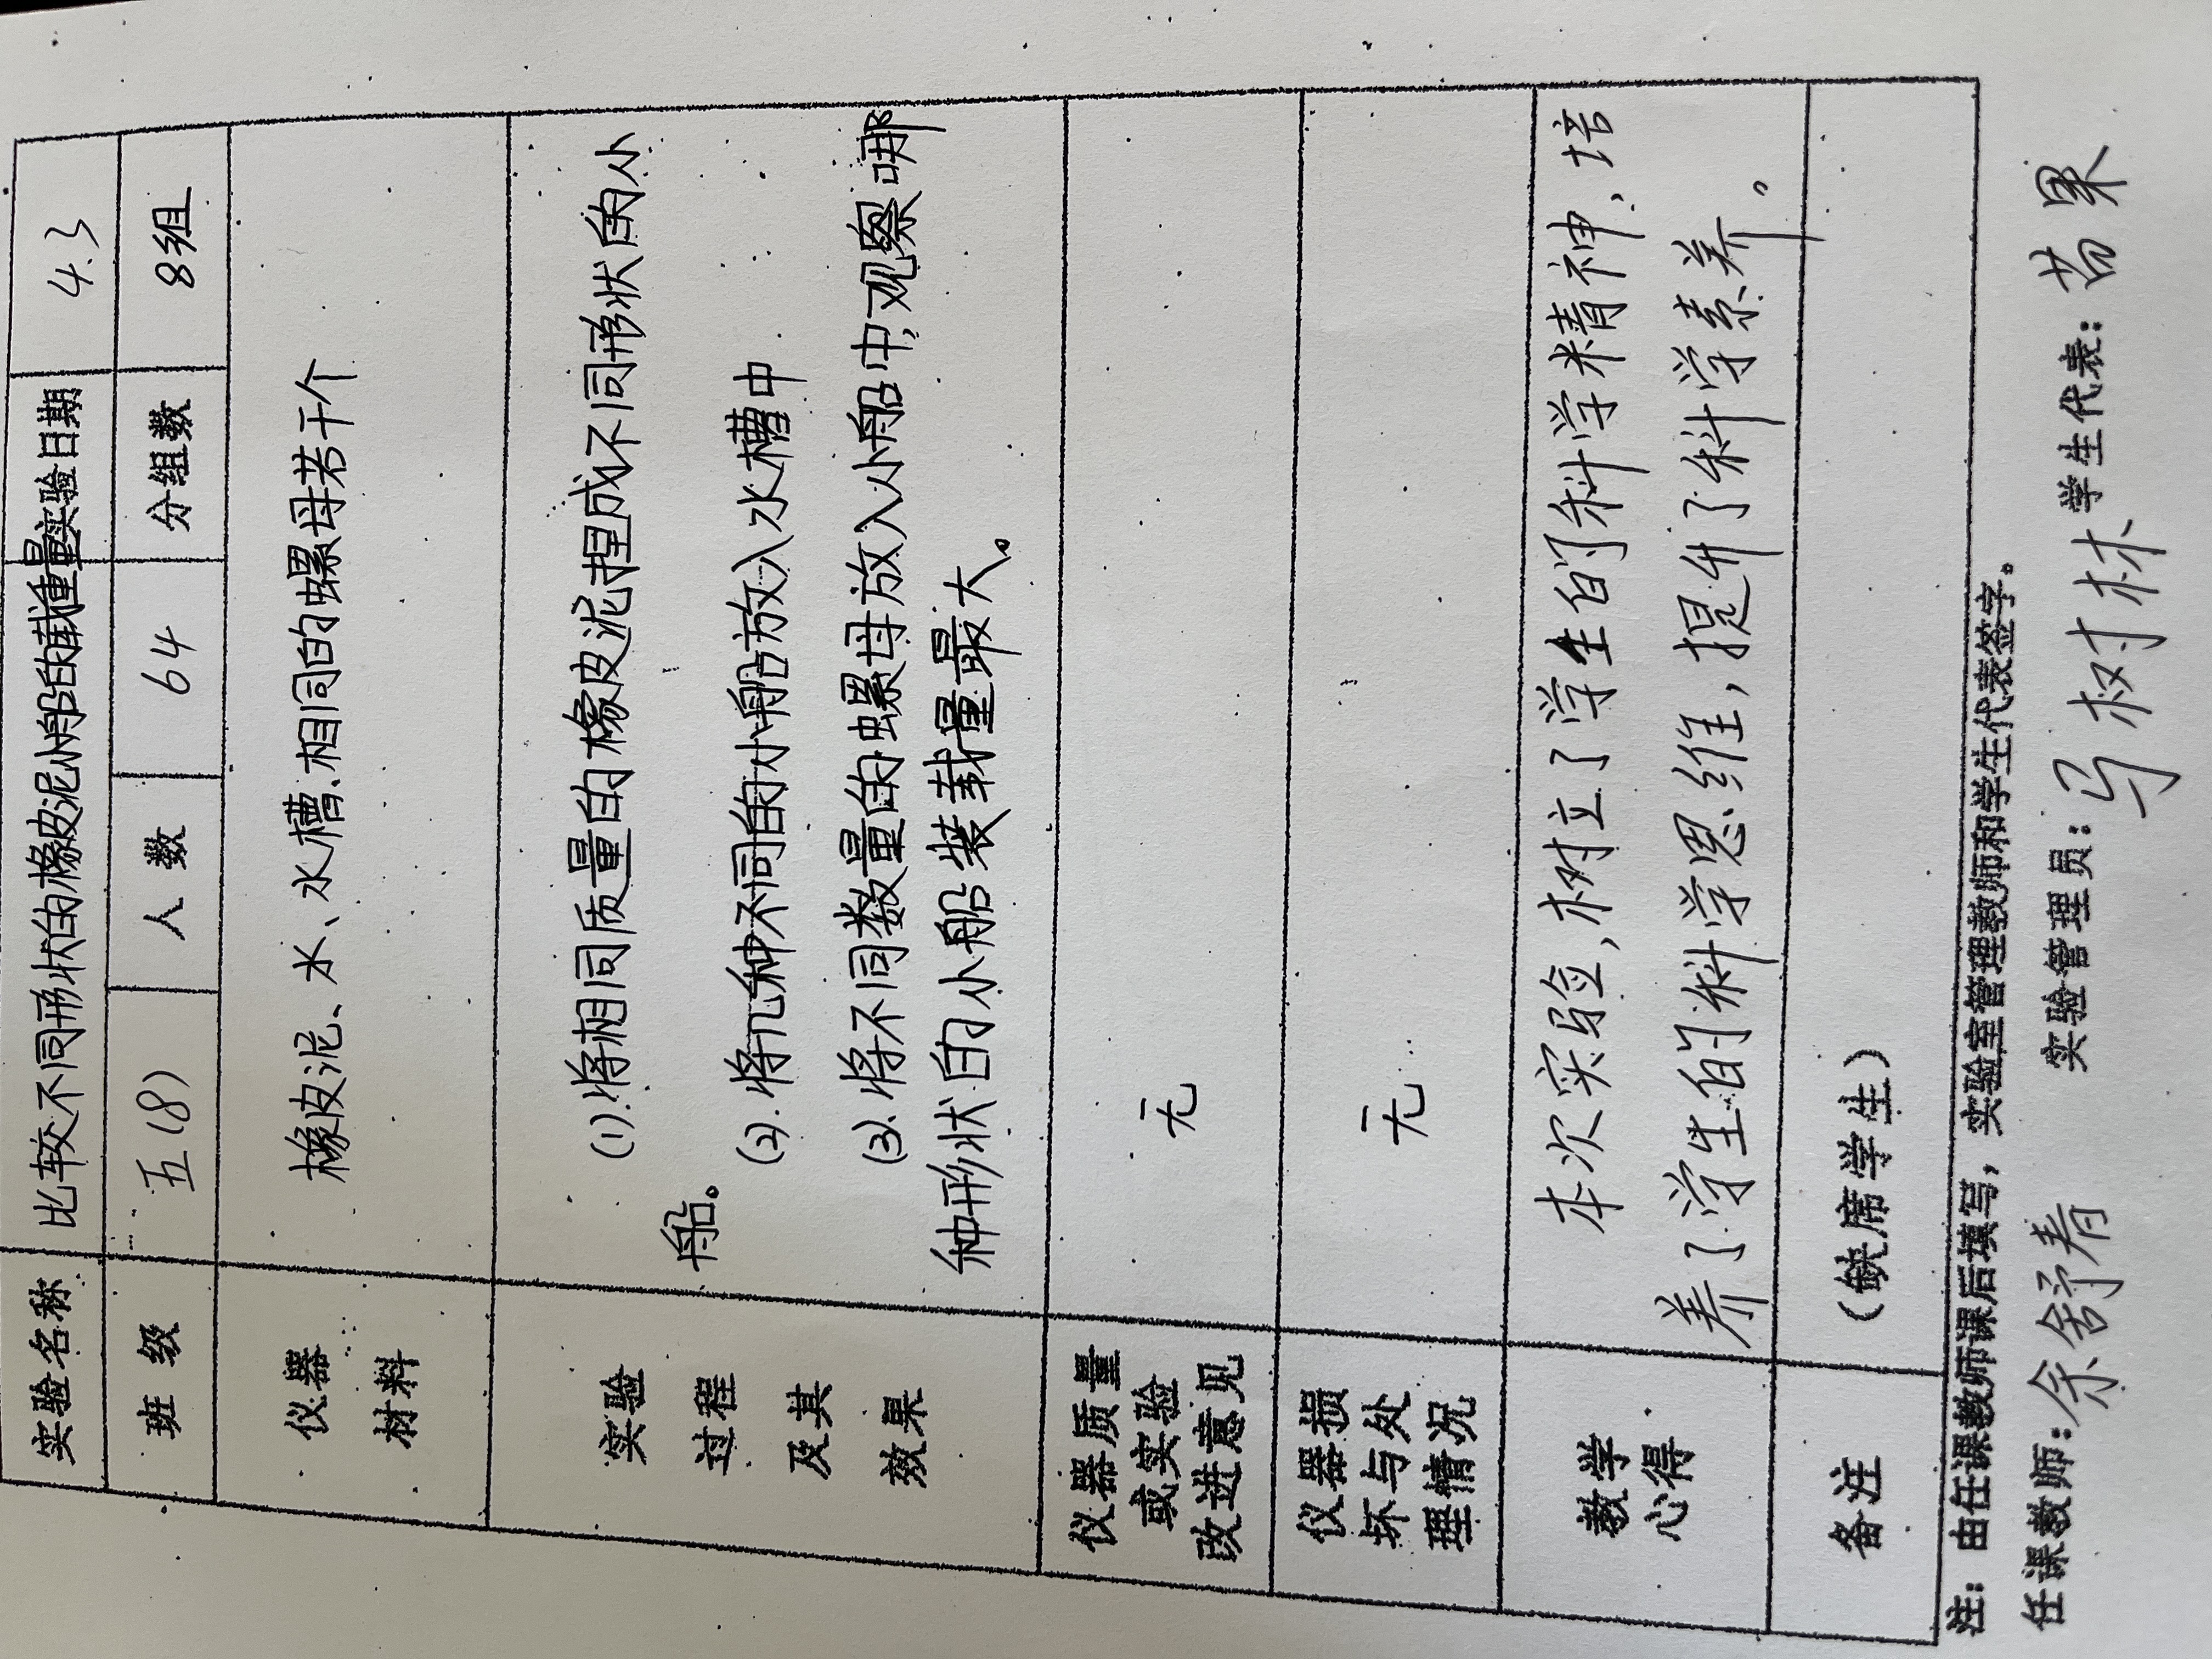 实验名称 比较不同形状的橡皮泥小船的载重量 实验日期 4.3
班 级 五(8) 人 数 64 分组数 8组
仪器
材料
橡皮泥、水、水槽、相同的螺母若干个
实验
过程
及其
效果
(1).将相同质量的橡皮泥捏成不同形状的小
船。
(2).将几种不同的小船放入水槽中
(3).将不同数量的螺母放入小船中,观察哪
种形状的小船装载量最大。
仪器质量
或实验
改进意见
无
仪器损
坏与处
理情况
无
教学
心得
本次实验,树立了学生的科学精神,培
养了学生的科学思维,提升了科学素养。
备注 (缺席学生)
注:由任课教师课后填写,实验室管理教师和学生代表签字。
任课教师:余舒春 实验管理员:马树林 学生代表:苦果